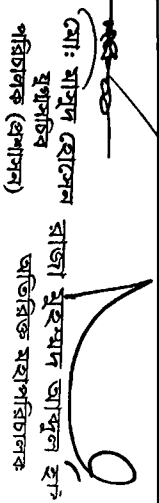 মোঃ মাসুদ হোসেন
যুগ্মসচিব
পরিচালক (প্রশাসন)
রাজা মুহম্মদ আব্দুল হাই
অতিরিক্ত মহাপরিচালক